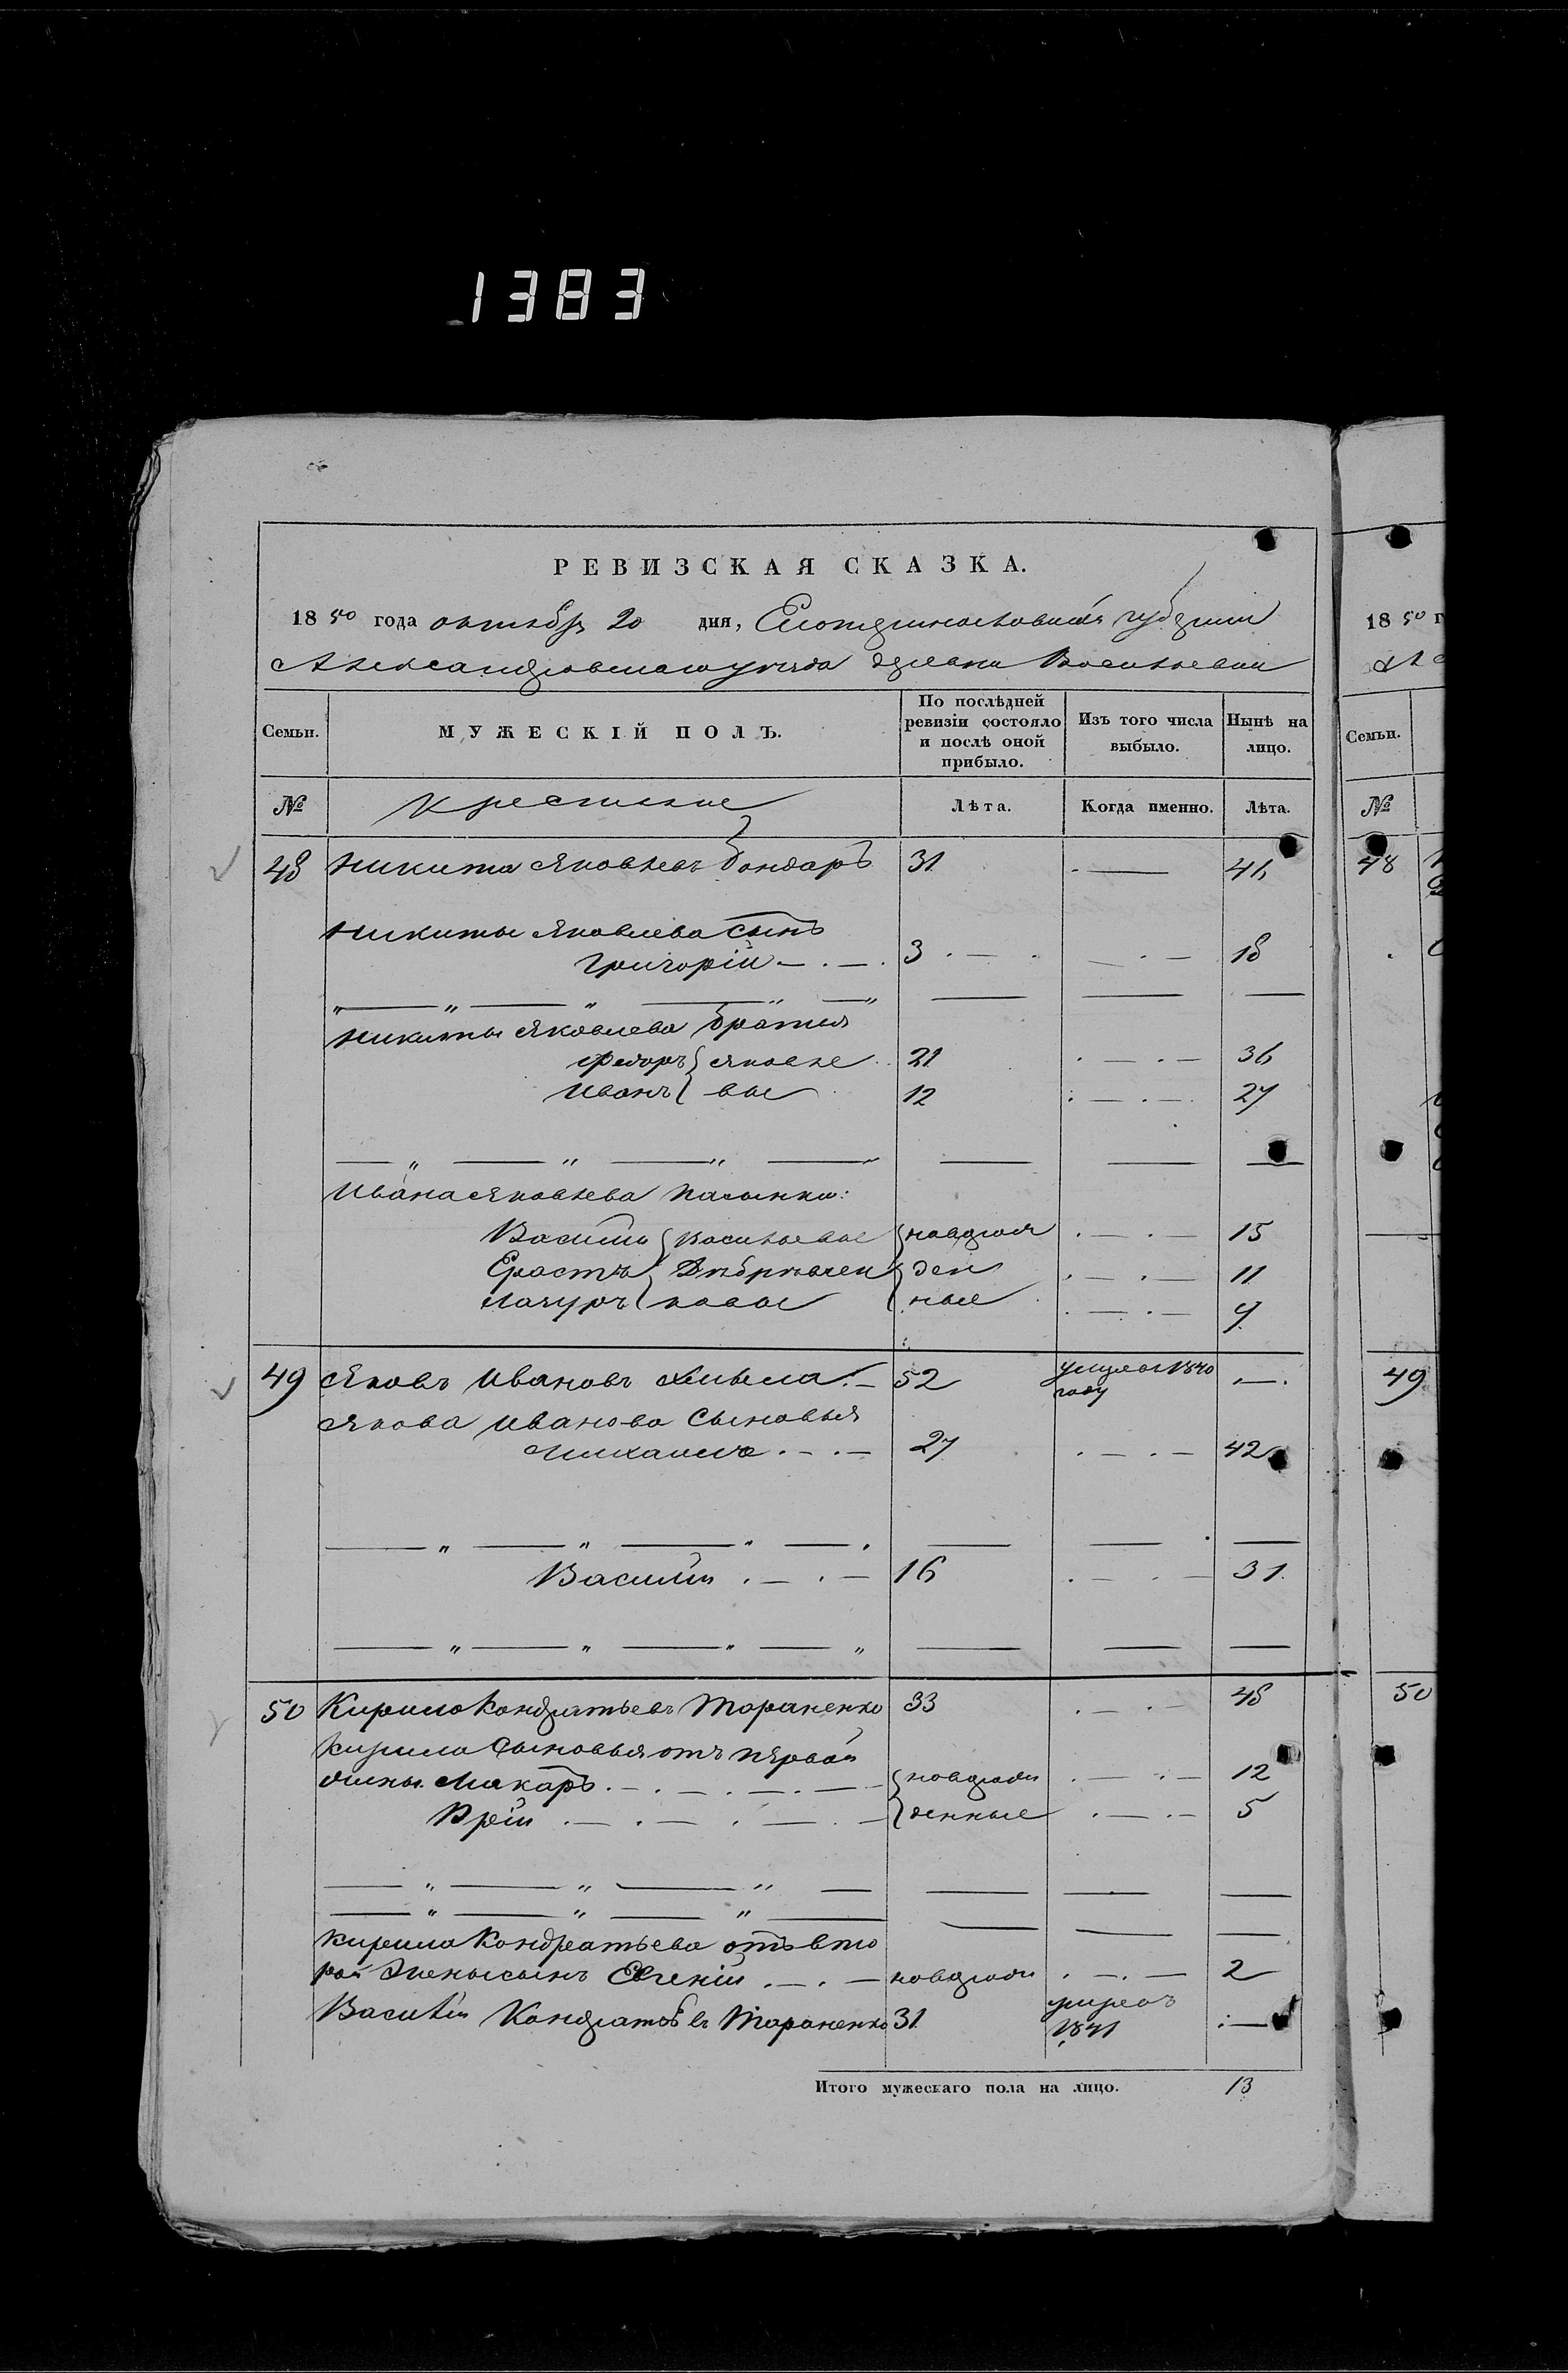 1383
РЕВИЗСКАЯ СКАЗКА.
1850 года октября 20 дня, Екатеринославской губернии
Александровскаго уезда деревни Васильевки
Семьи. МУЖЕСКІЙ ПОЛЪ. По послѣдней ревизіи состояло и послѣ оной прибыло. Изъ того числа выбыло. Нынѣ на лицо.
№ Крестьяне Лѣта. Когда именно. Лѣта.
48 Никита Яковлевъ Бондарь 31 46
Никиты Яковлева сынъ
Григорій 3 18
Никиты Яковлева братья
Федоръ Яковле 21 36
Иванъ вы 12 27
Ивана Яковлева пасынки:
Василій Васильевые новорож 15
Ерастъ ден 11
Мазуръ ковые ные 9
49 Яковъ Ивановъ Хмыла 52 умре въ 1840 году
Якова Иванова сыновья
Михаилъ 27 42
Василій 16 31
50 Кирило Кондратьевъ Тараненко 33 48
Кирила сыновья отъ первой
жены Макаръ новорож 12
денные 5
Кирила Кондратьева отъ вто
рой жены сынъ Евгеній новорож 2
Василій Кондратьевъ Тараненко 31 умре въ 1841
Итого мужескаго пола на лицо. 13
1850 г
Ал
Семьи.
№
48
49
50